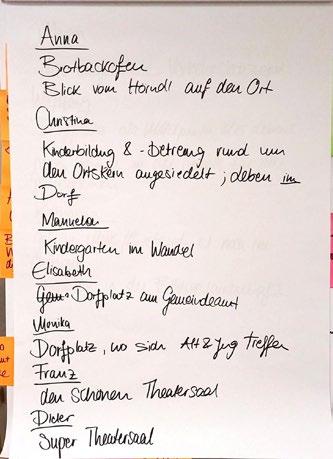 Anna
Brotbackofen
Blick vom Hörndl auf den Ort
Christina
Kinderbildung & -betreuung rund um
den Ortskern angesiedelt; leben im
Dorf
Manuela
Kindergarten im Wandel
Elisabeth
Dorfplatz am Gemeindeamt
Monika
Dorfplatz, wo sich Alt & Jung treffen
Franz
den schönen Theatersaal
Dieter
Super Theatersaal